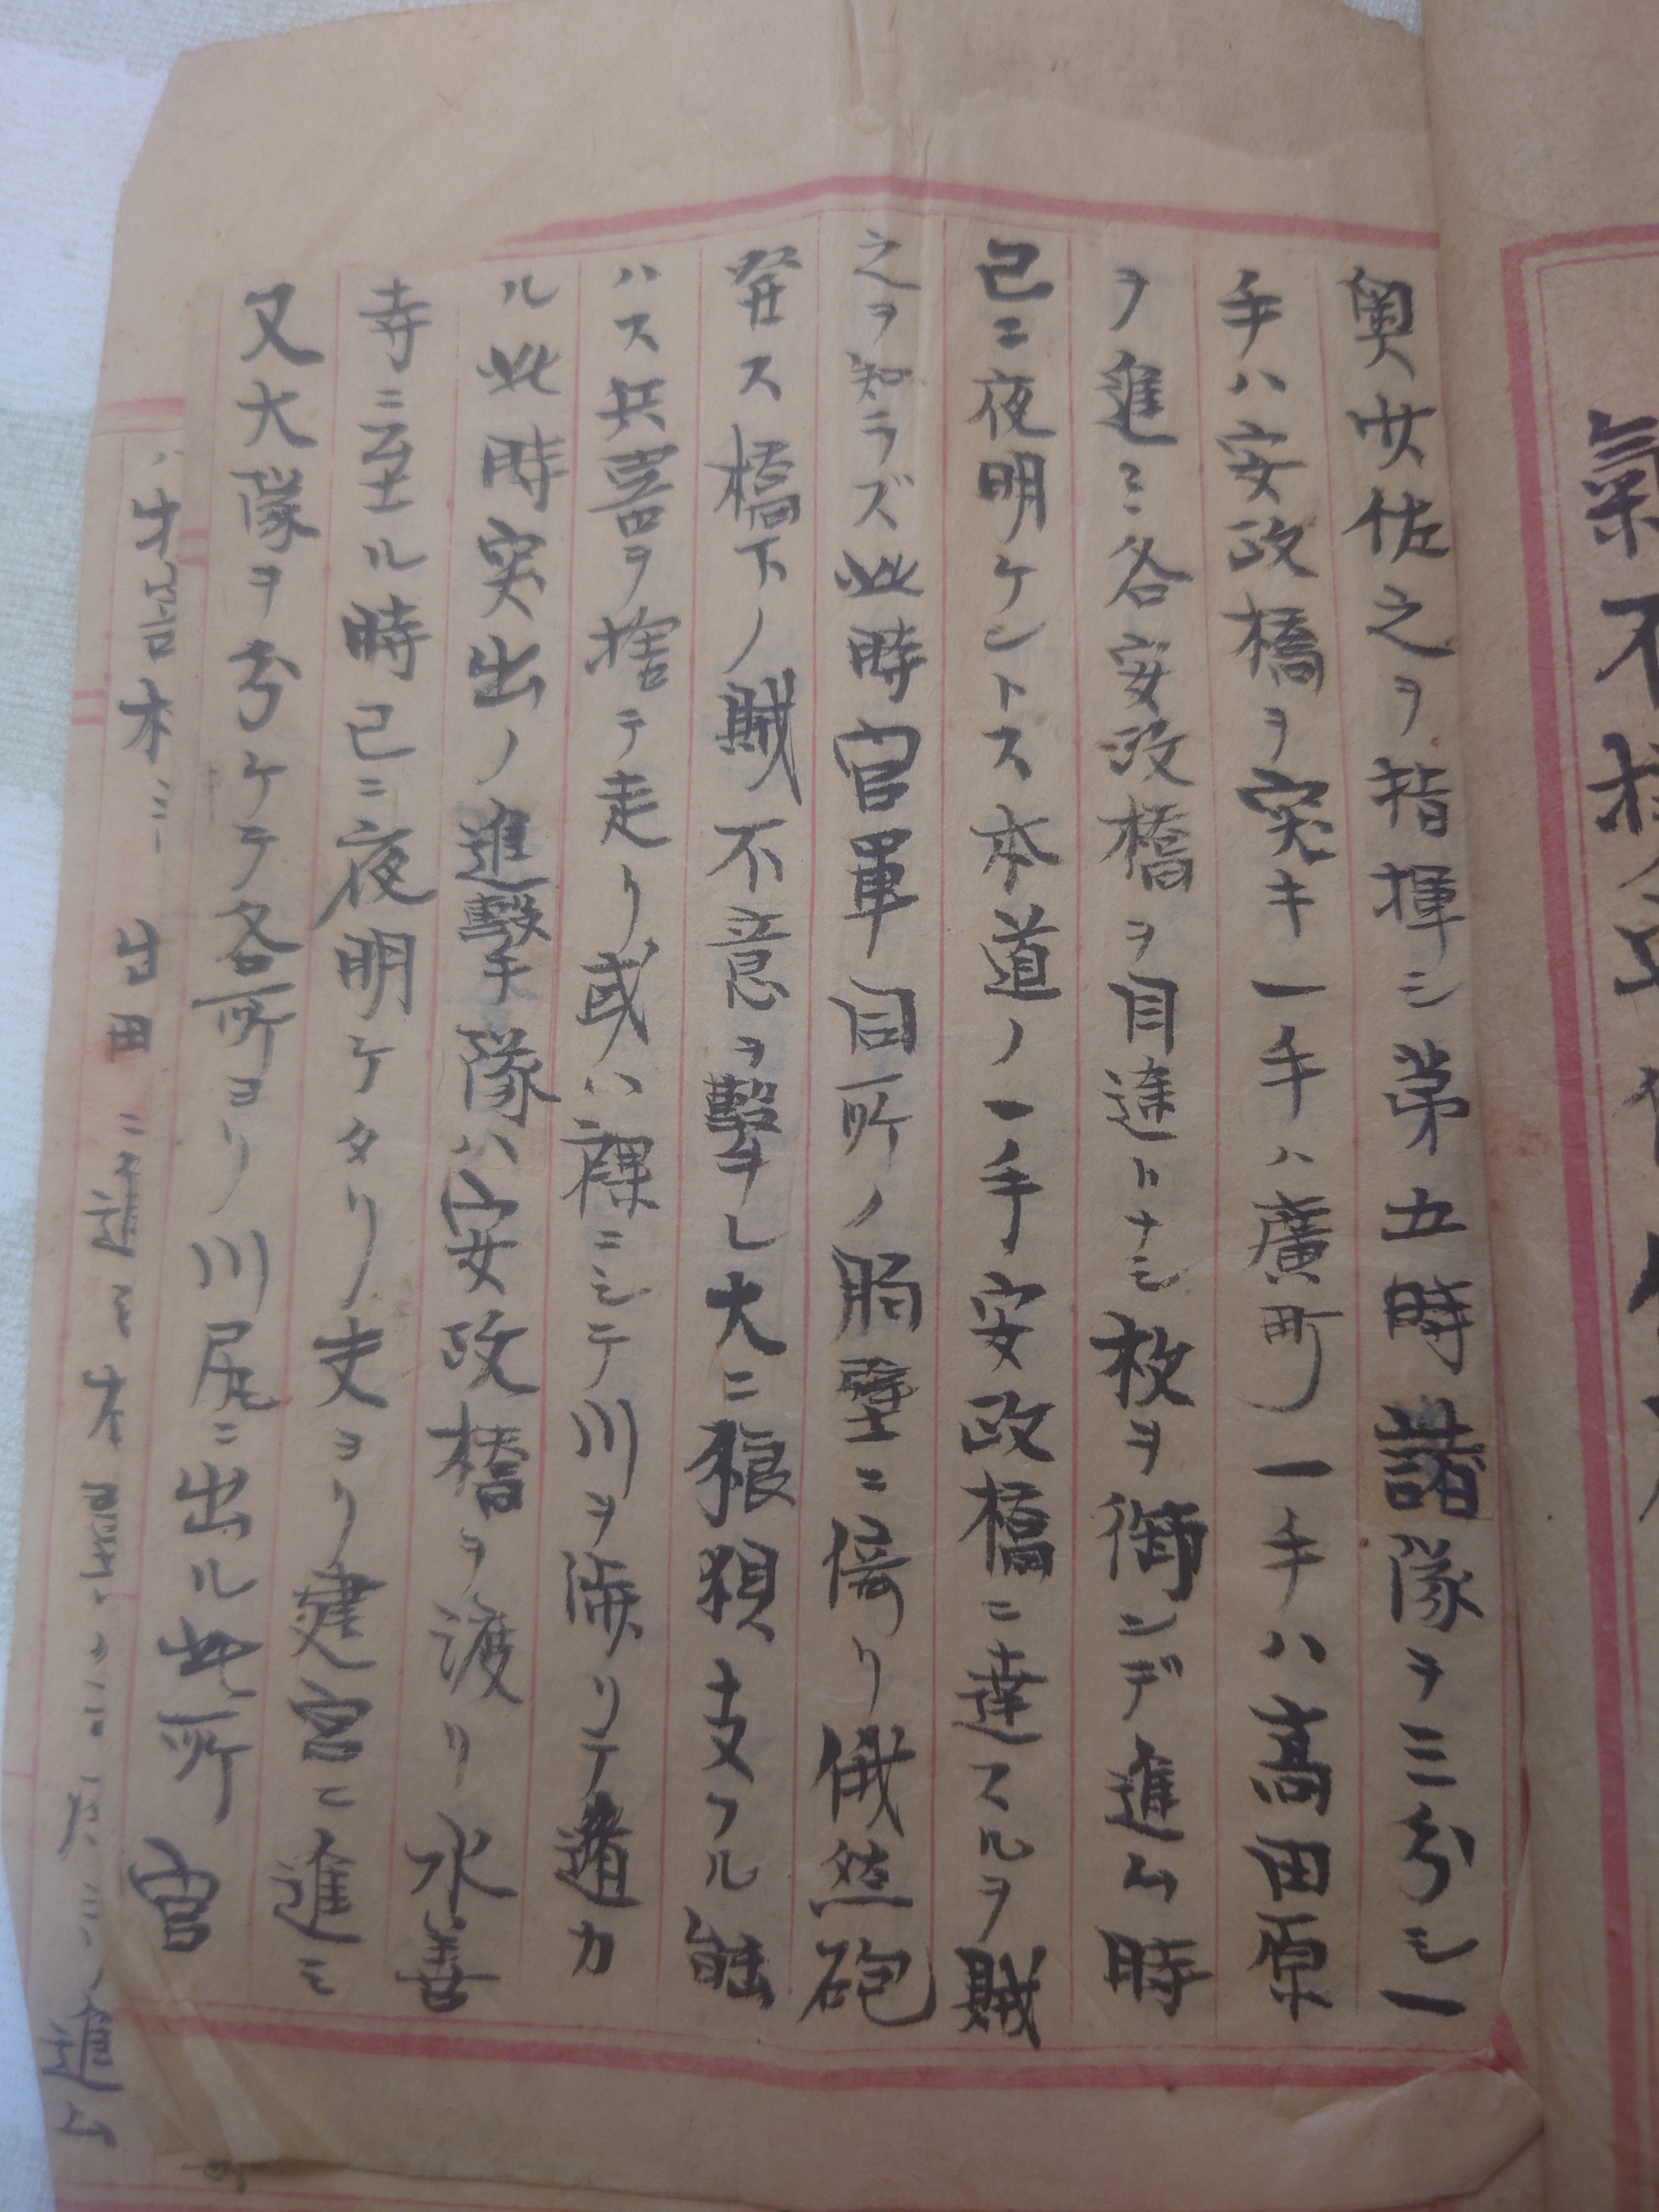 氣不
奥少佐之ヲ指揮シ第五時諸隊ヲ三分シ一
手ハ安政橋ヲ突キ一手ハ廣町一手ハ高田原
ヲ進ミ各安政橋ヲ目途トナシ枚ヲ銜ンデ進ム時
已ニ夜明ケントス本道ノ一手安政橋ニ達スルヲ賊
之ヲ知ラズ此時官軍同所ノ胸壁ニ倚リ俄然砲
発ス橋下ノ賊不意ヲ撃レ大ニ狼狽支フル能
ハス兵器ヲ捨テ走リ或ハ裸ニシテ川ヲ渉リテ遁カ
ル此時突出ノ進撃隊ハ安政橋ヲ渡リ水善
寺ニ至ル時已ニ夜明ケタリ夫ヨリ建宮ニ進ミ
又大隊ヲ分ケテ各所ヨリ川尻ニ出ル此所官
出田ニ進ミ木 進ム